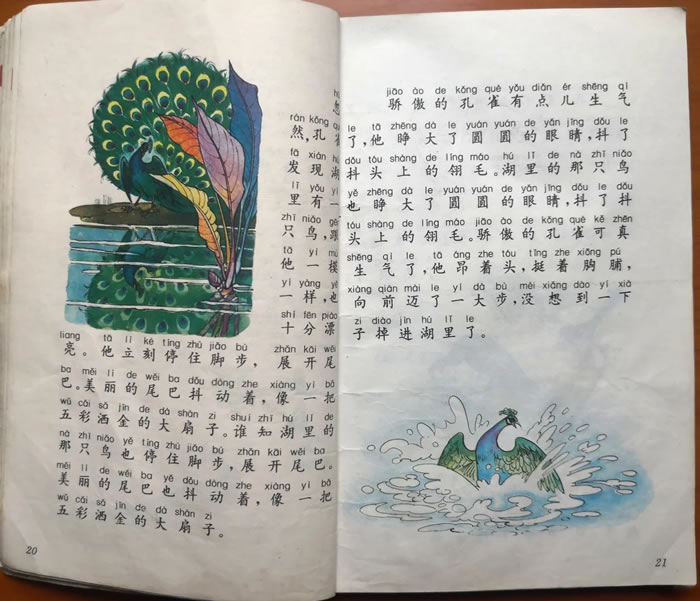 hū
忽
rán kǒng què
然,孔雀
fā xiàn hú
发现湖
lǐ yǒu yì
里有一
zhī niǎo gēn
只鸟,跟
tā yì mú
他一模
yí yàng yě
一样,也
shí fēn piào
十分漂
liang tā lì kè tíng zhù jiǎo bù zhǎn kāi wěi
亮。他立刻停住脚步,展开尾
ba měi lì de wěi ba dǒu dòng zhe xiàng yì bǎ
巴。美丽的尾巴抖动着,像一把
wǔ cǎi sǎ jīn de dà shàn zi shuí zhī hú lǐ de
五彩洒金的大扇子。谁知湖里的
nà zhī niǎo yě tíng zhù jiǎo bù zhǎn kāi wěi ba
那只鸟也停住脚步,展开尾巴。
měi lì de wěi ba yě dǒu dòng zhe xiàng yì bǎ
美丽的尾巴也抖动着,像一把
wǔ cǎi sǎ jīn de dà shàn zi
五彩洒金的大扇子。
20
jiāo ào de kǒng què yǒu diǎn ér shēng qì
骄傲的孔雀有点儿生气
le tā zhēng dà le yuán yuán de yǎn jīng dǒu le
了,他睁大了圆圆的眼睛,抖了
dǒu tóu shàng de líng máo hú lǐ de nà zhī niǎo
抖头上的翎毛。湖里的那只鸟
yě zhēng dà le yuán yuán de yǎn jīng dǒu le dǒu
也睁大了圆圆的眼睛,抖了抖
tóu shàng de líng máo jiāo ào de kǒng què kě zhēn
头上的翎毛。骄傲的孔雀可真
shēng qì le tā áng zhe tóu tǐng zhe xiōng pú
生气了,他昂着头,挺着胸脯,
xiàng qián mài le yí dà bù méi xiǎng dào yí xià
向前迈了一大步,没想到一下
zi diào jìn hú lǐ le
子掉进湖里了。
21